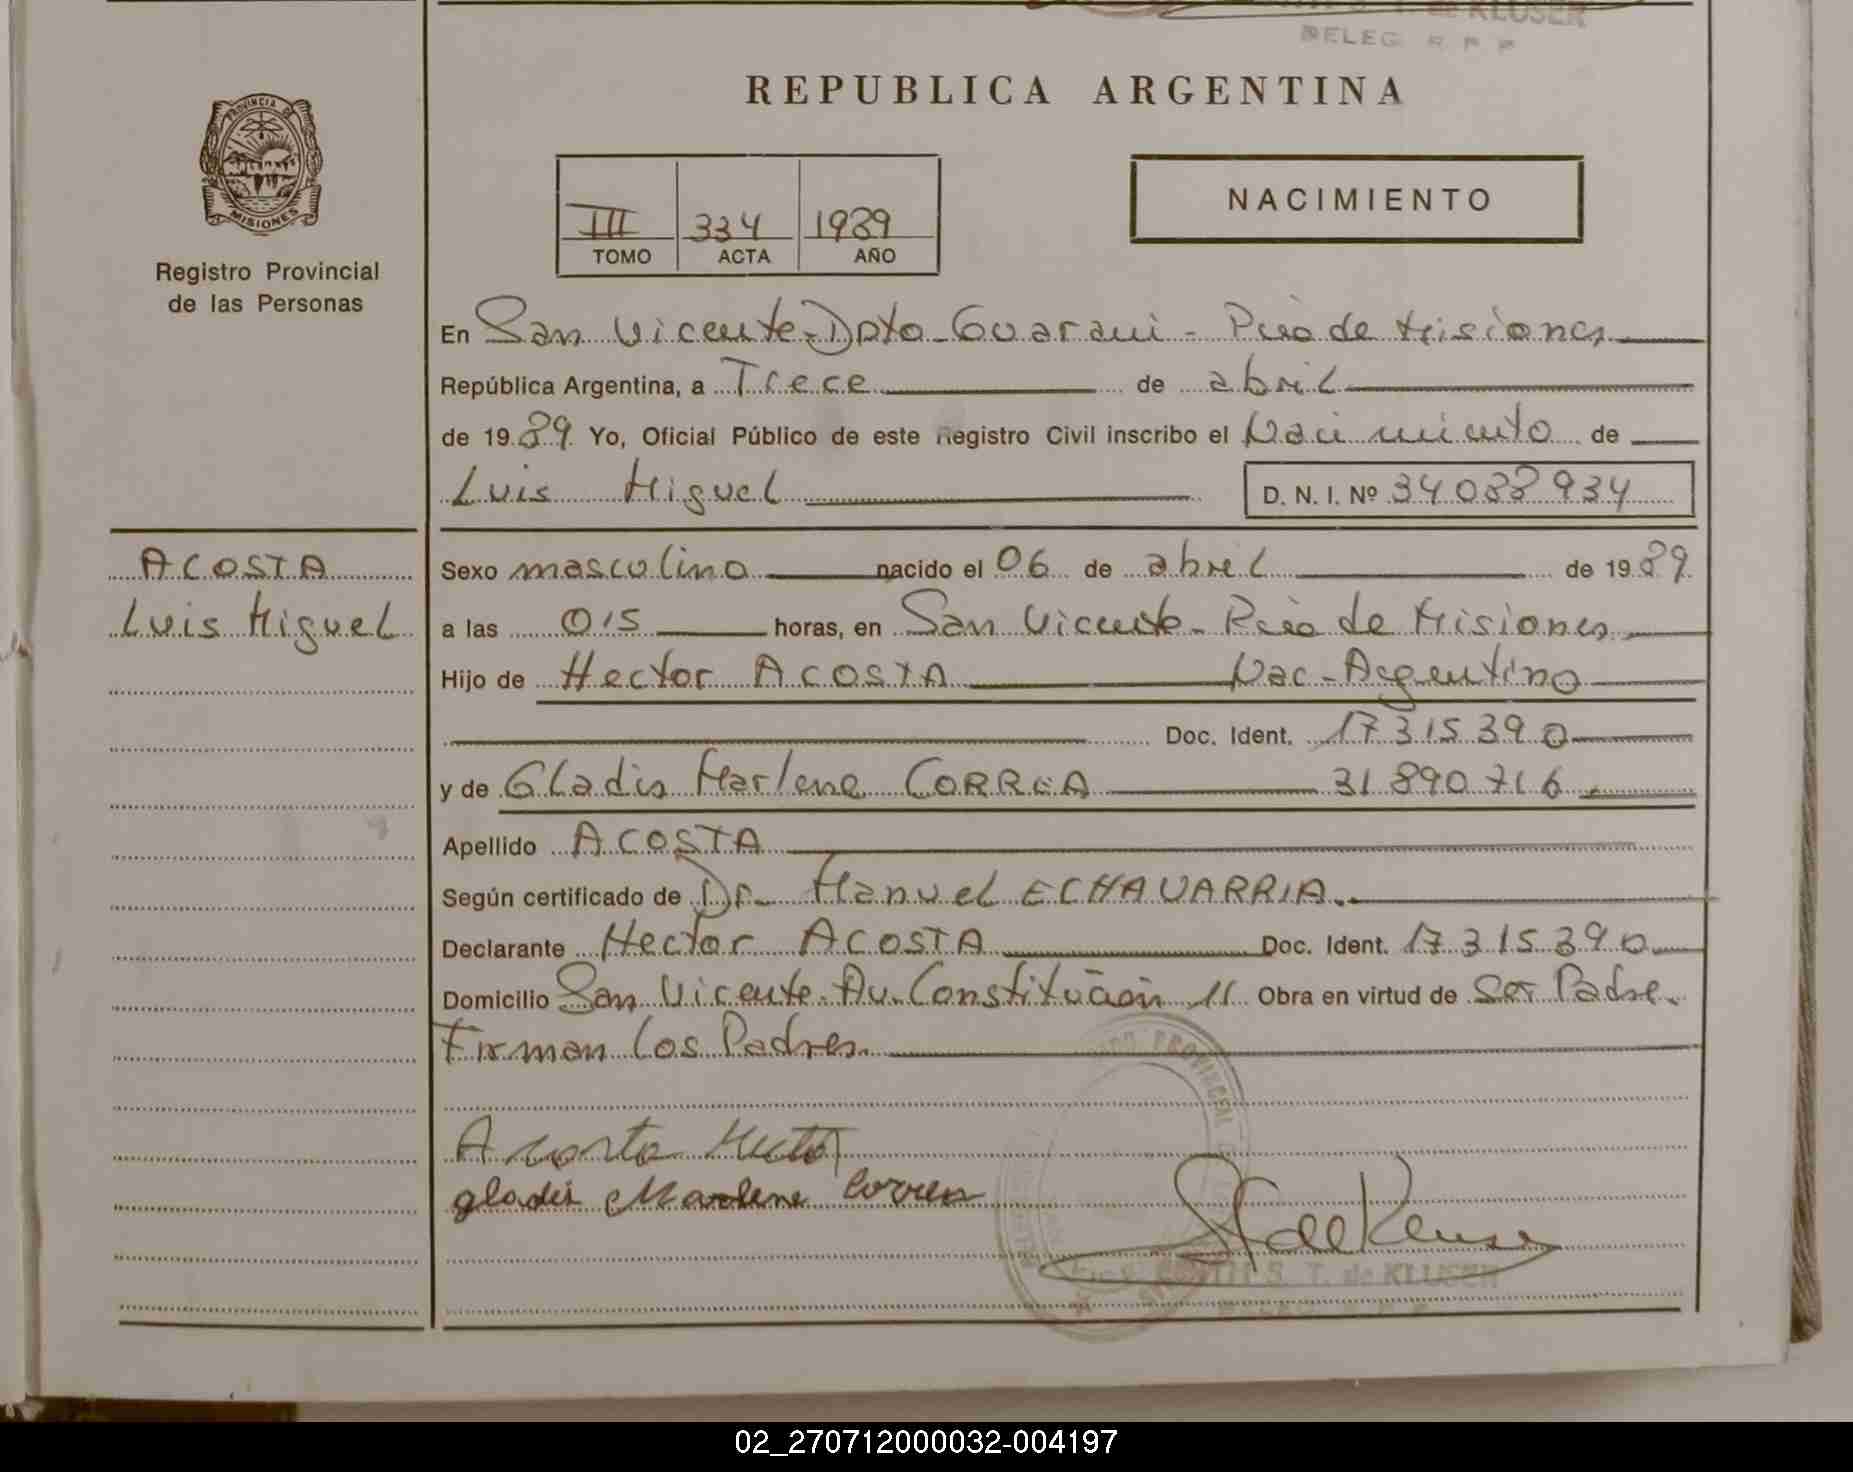 T. de KLUSER
DELEG. R. P. P.
REPUBLICA ARGENTINA
PROVINCIA DE
MISIONES
Registro Provincial
de las Personas
III 334 1989
TOMO ACTA AÑO
NACIMIENTO
En San Vicente-Dpto-Guarani - Pcia de Misiones
República Argentina, a Trece de abril
de 1989 Yo, Oficial Público de este Registro Civil inscribo el Nacimiento de
Luis Miguel D. N. I. Nº 34088934
ACOSTA
Luis Miguel
Sexo masculino nacido el 06 de abril de 1989
a las 0,15 horas, en San Vicente- Pcia de Misiones
Hijo de Hector ACOSTA Nac-Argentino
Doc. Ident. 17315390
y de Gladis Marlene CORREA 31890716
Apellido ACOSTA
Según certificado de Dr. Manuel ECHAVARRIA.
Declarante Hector ACOSTA Doc. Ident. 17315390
Domicilio San Vicente-Av. Constitución 11 Obra en virtud de ser Padre.
Firman los Padres.
Acosta Hector
gladis Marlene Correa
S. T. de KLUSER
02_270712000032-004197